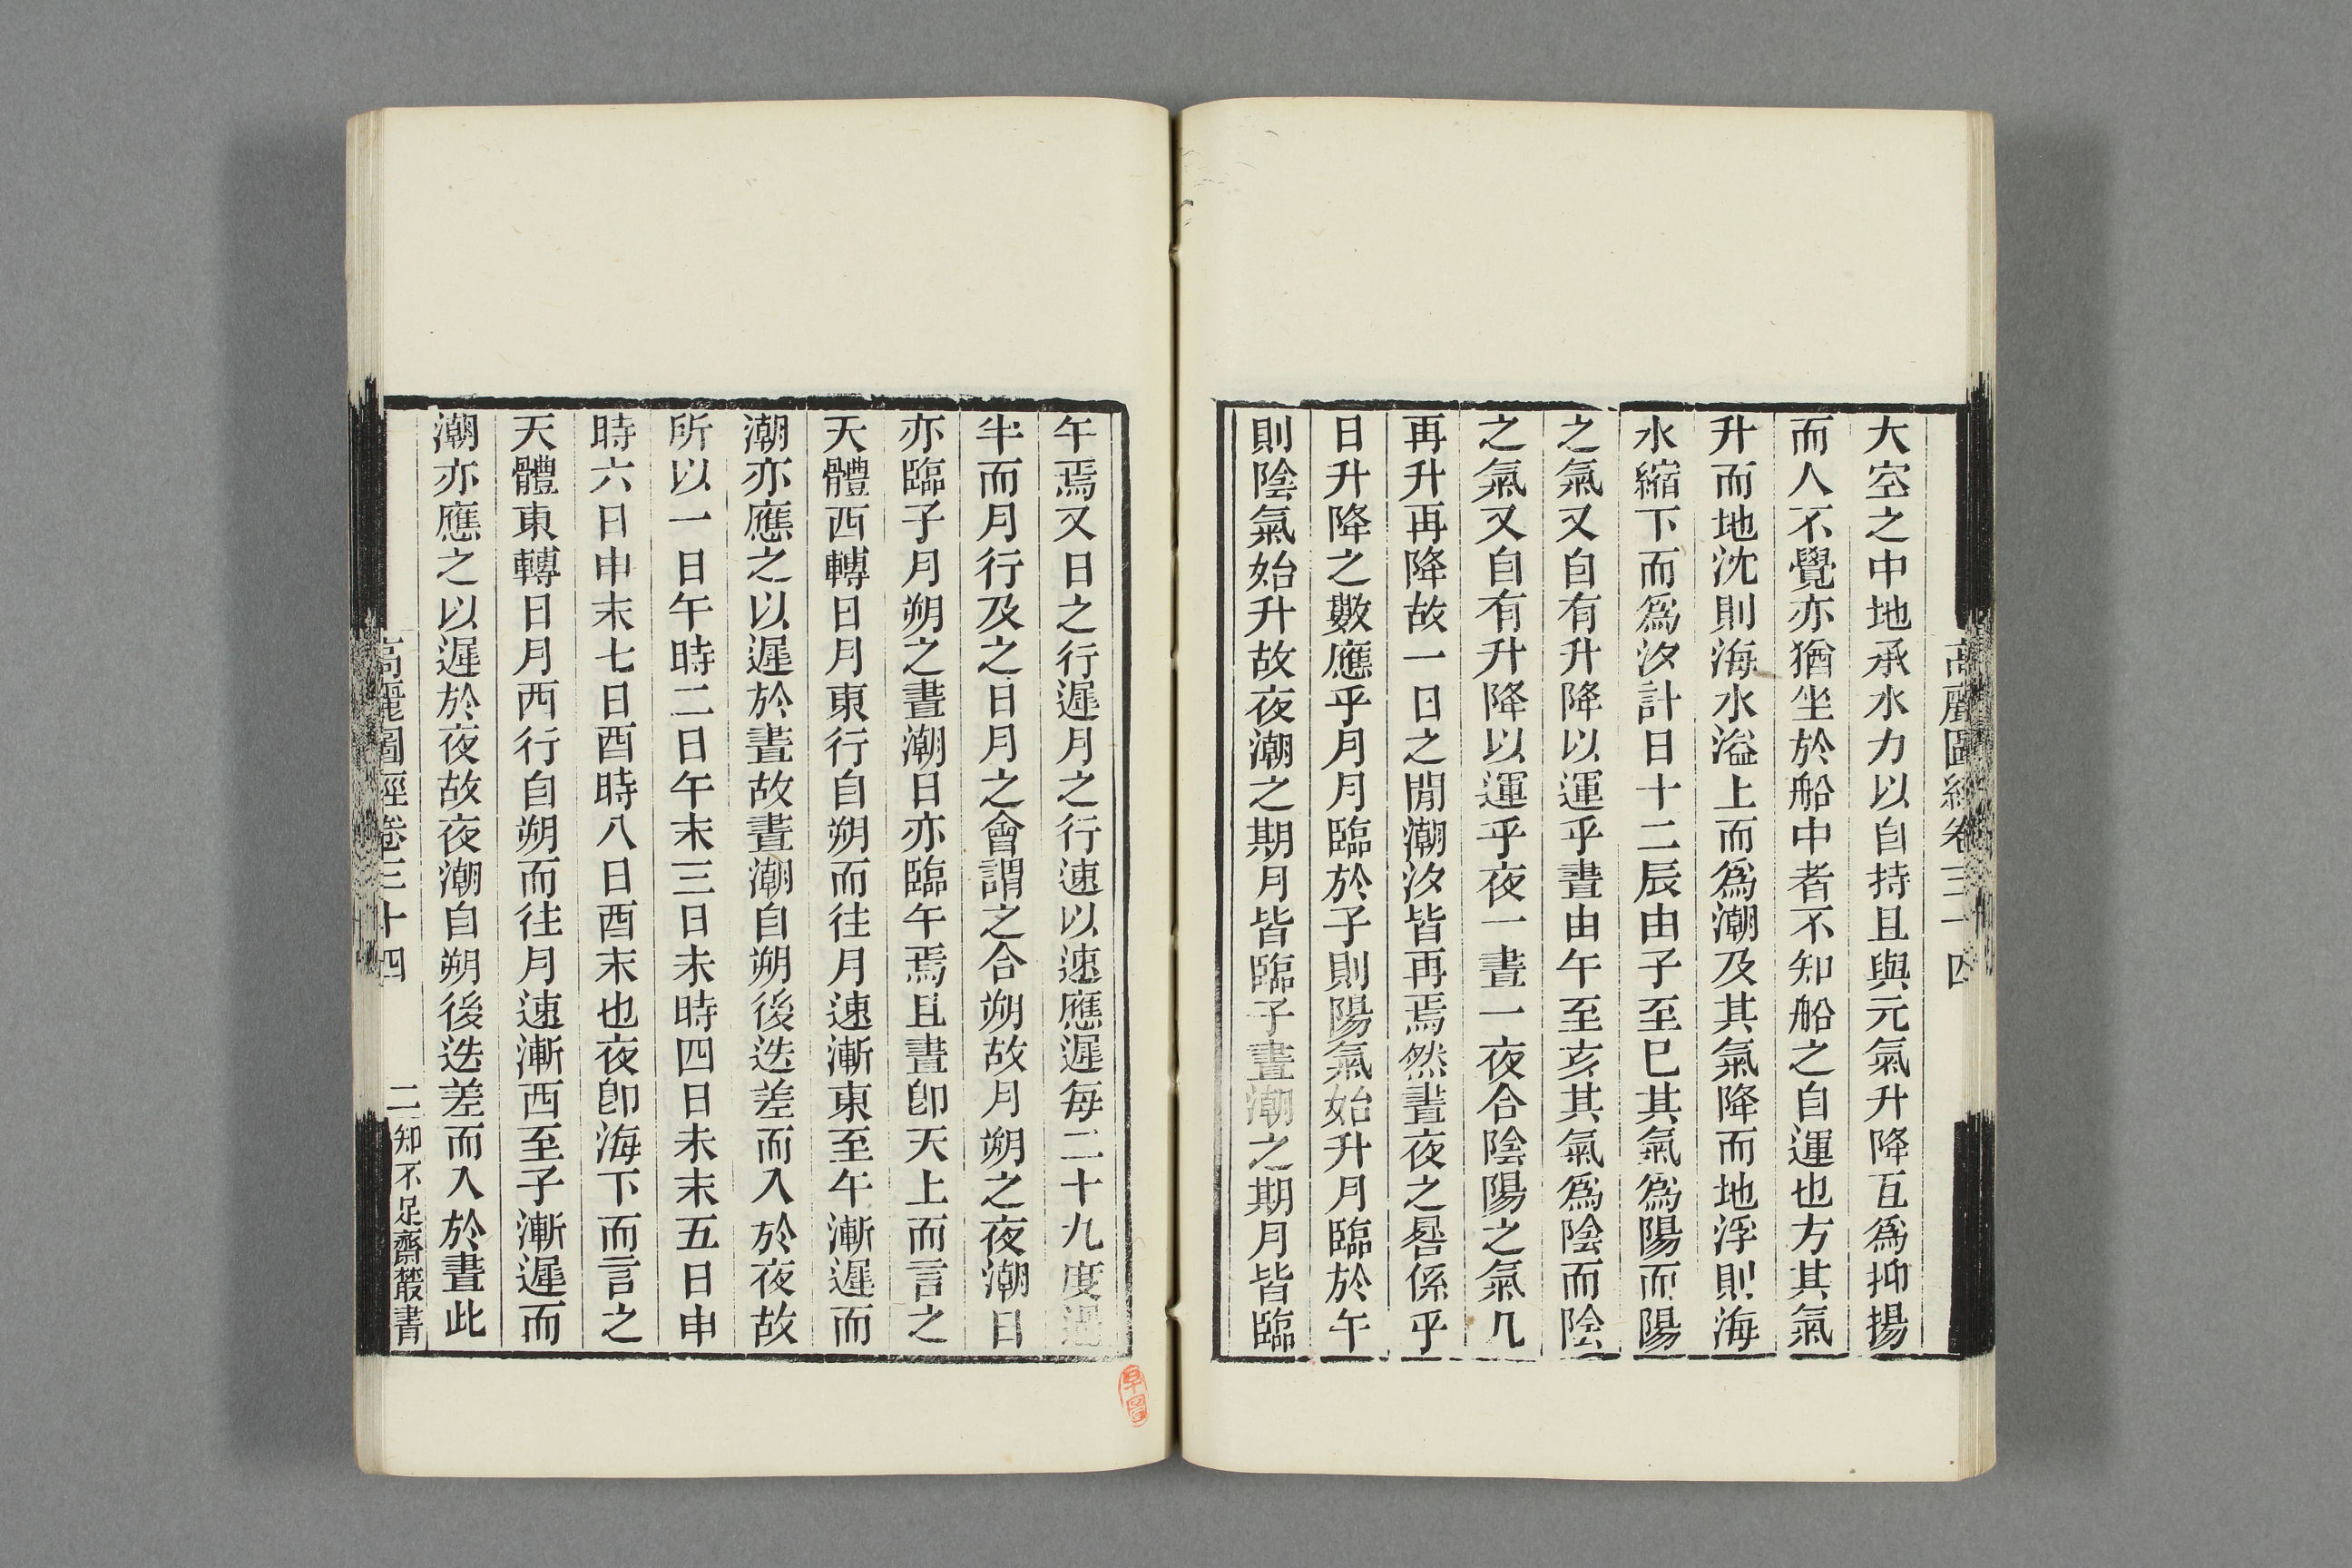 高麗圖經卷三十四
大空之中地承水力以自持且與元氣升降互爲抑揚
而人不覺亦猶坐於船中者不知船之自運也方其氣
升而地沈則海水溢上而爲潮及其氣降而地浮則海
水縮下而爲汐計日十二辰由子至巳其氣爲陽而陽
之氣又自有升降以運乎晝由午至亥其氣爲陰而陰
之氣又自有升降以運乎夜一晝一夜合陰陽之氣凡
再升再降故一日之閒潮汐皆再焉然晝夜之晷係乎
日升降之數應乎月月臨於子則陽氣始升月臨於午
則陰氣始升故夜潮之期月皆臨子晝潮之期月皆臨
午焉又日之行遲月之行速以速應遲每二十九度過
半而月行及之日月之會謂之合朔故月朔之夜潮日
亦臨子月朔之晝潮日亦臨午焉且晝卽天上而言之
天體西轉日月東行自朔而往月速漸東至午漸遲而
潮亦應之以遲於晝故晝潮自朔後迭差而入於夜故
所以一日午時二日午末三日未時四日未末五日申
時六日申末七日酉時八日酉末也夜卽海下而言之
天體東轉日月西行自朔而往月速漸西至子漸遲而
潮亦應之以遲於夜故夜潮自朔後迭差而入於晝此
高麗圖經卷三十四 二 知不足齋叢書